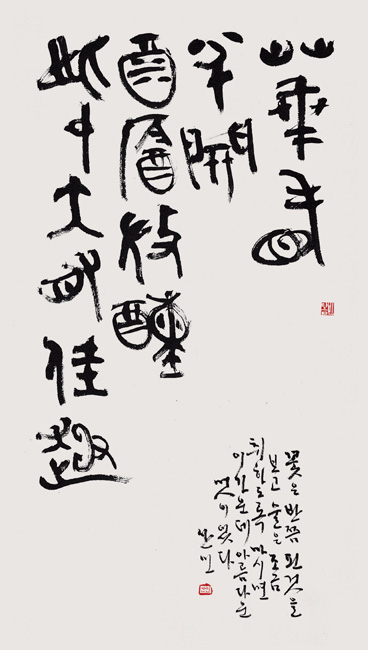 華看
半開
酉酓微醺
此中大有佳趣
꽃은 반쯤 핀 것을
보고 술은 조금
취하도록 마시면
이 가운데 아름다운
멋이 있다
산민